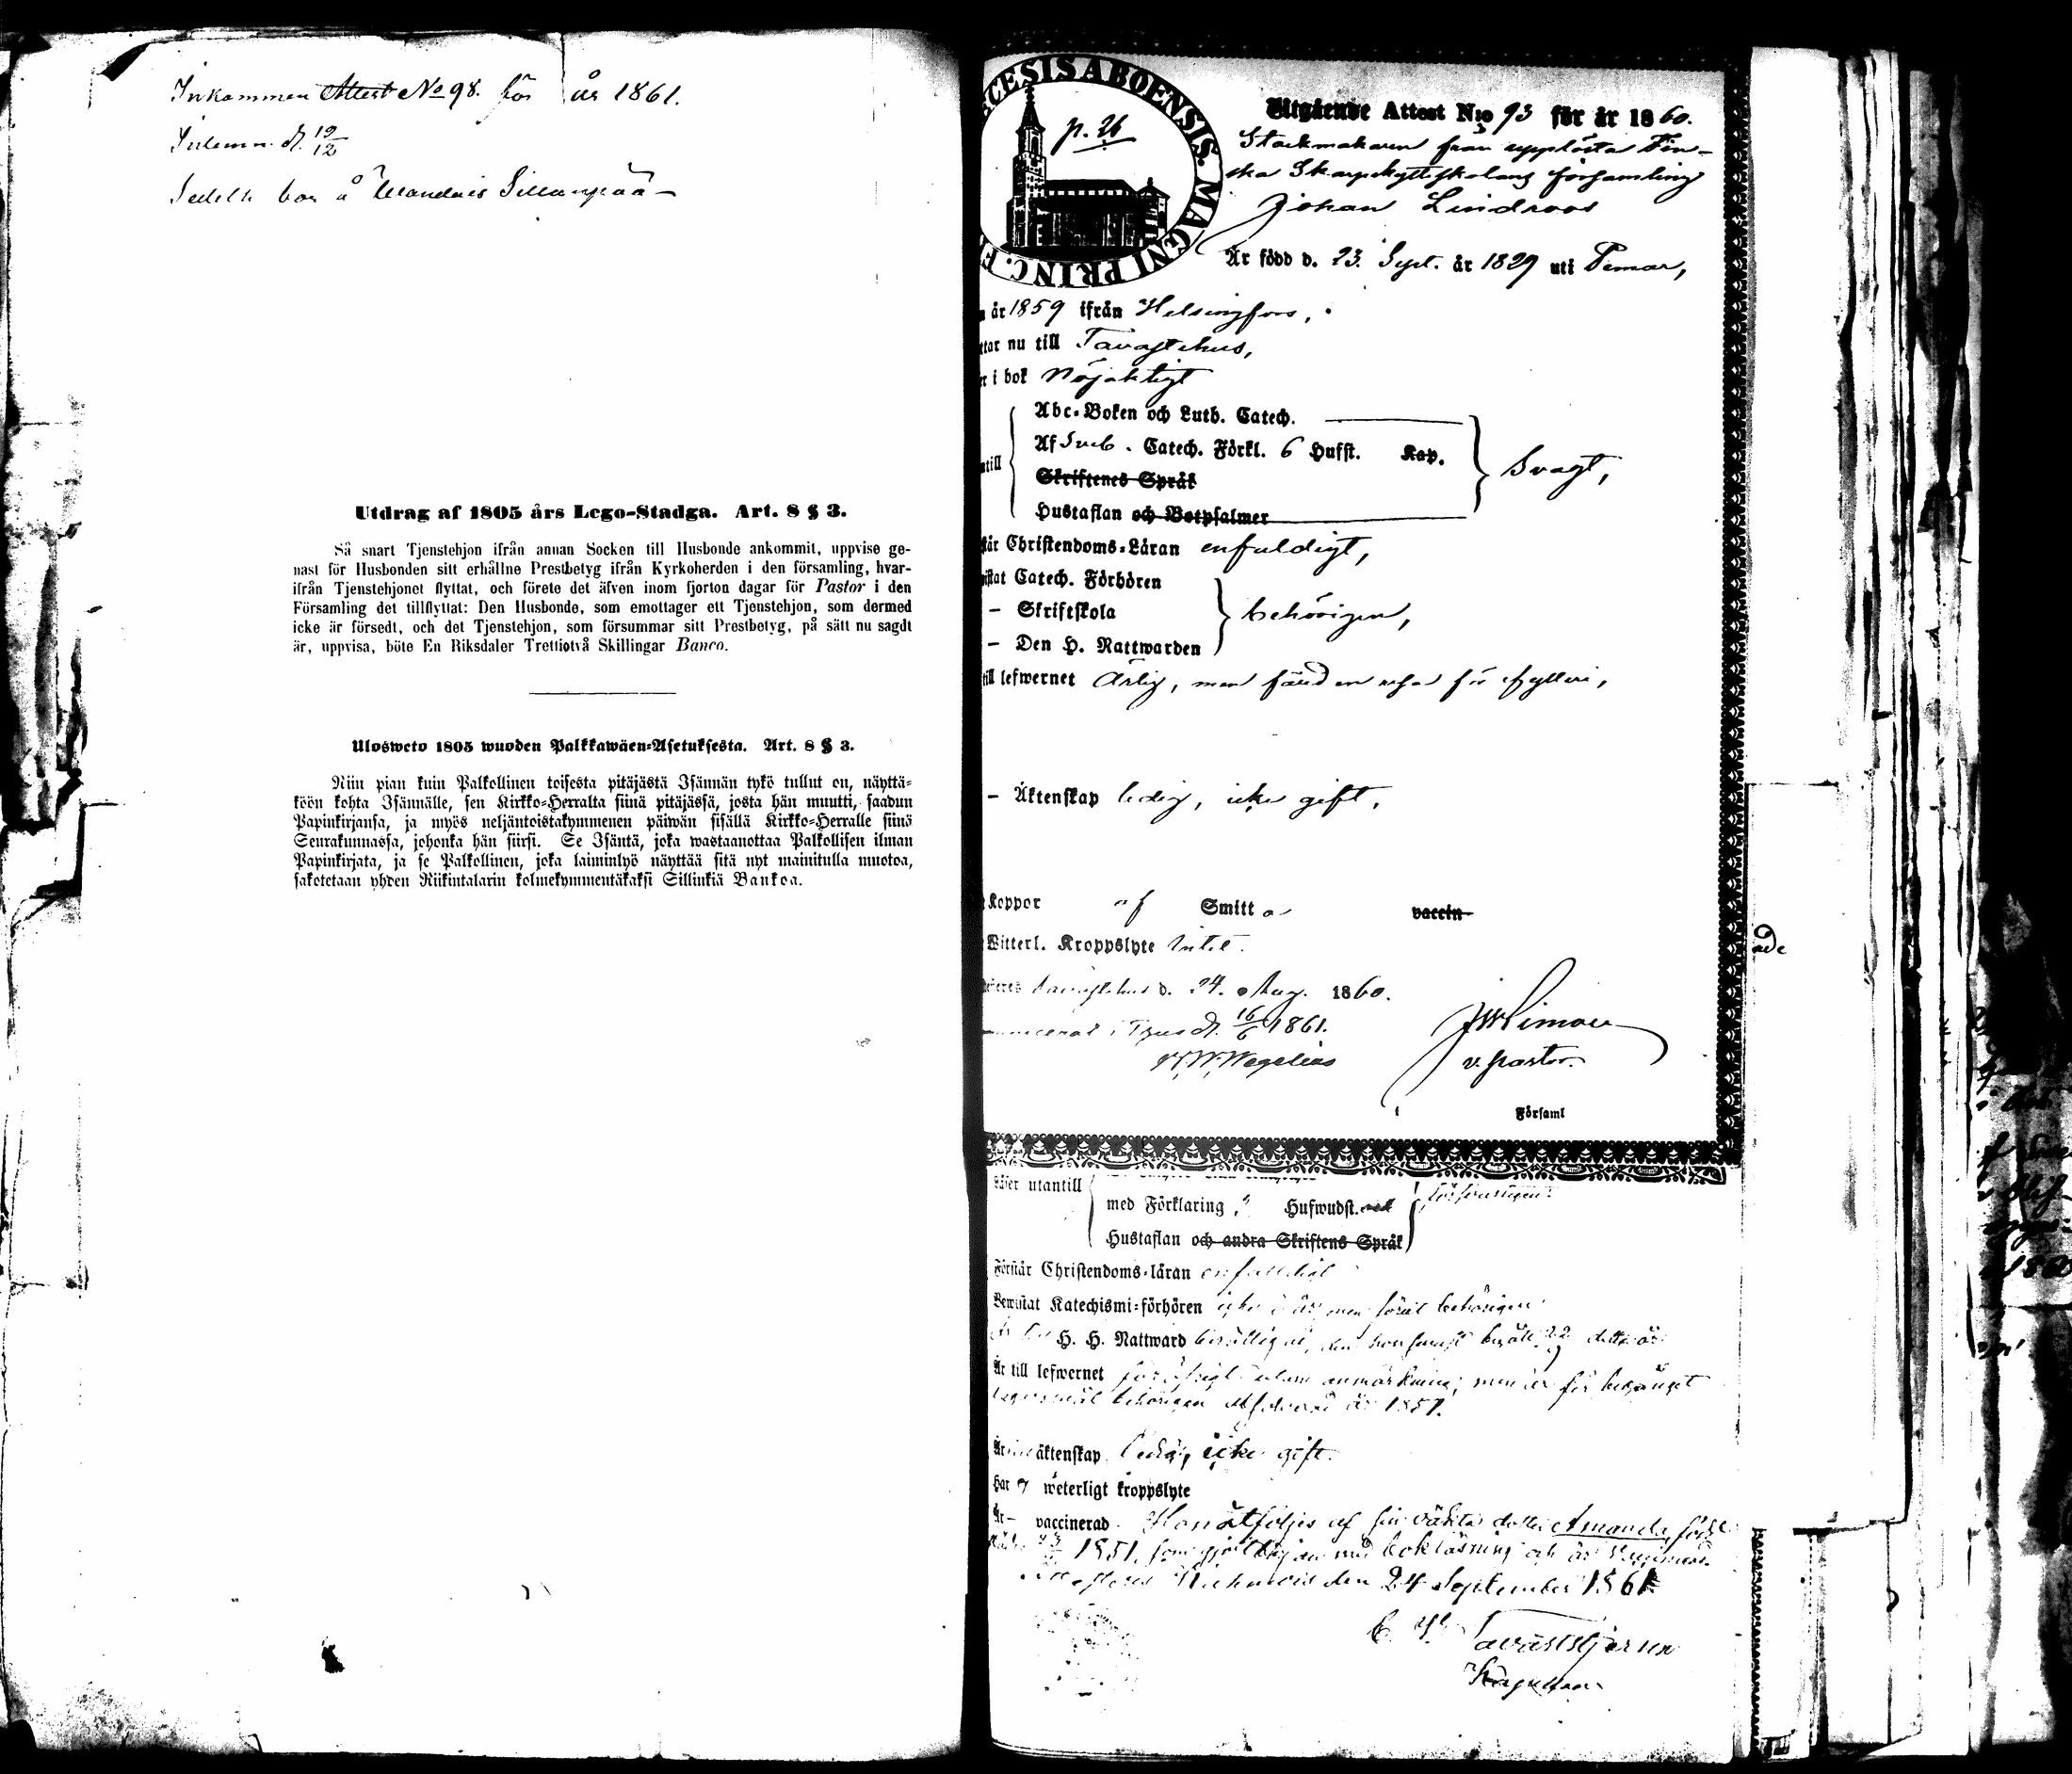 Inkommen Attest No 98. för år 1861.
Inlemn. d. 19/12
Utdrag af 1805 års Lego-Stadga. Art. 8 § 3.
Så snart Tjenstehjon ifrån annan Socken till Husbonde ankommit, uppvise ge-
nast för Husbonden sitt erhållne Prestbetyg ifrån Kyrkoherden i den församling, hvar-
ifrån Tjenstehjonet flyttat, och förete det äfven inom fjorton dagar för Pastor i den
Församling det tillflyttat: Den Husbonde, som emottager ett Tjenstehjon, som dermed
icke är försedt, och det Tjenstehjon, som försummar sitt Prestbetyg, på sätt nu sagdt
är, uppvisa, böte En Riksdaler Trettiotvå Skillingar Banco.
Ulosweto 1805 wuoden Palkkawäen-Asetuksesta. Art. 8 § 3.
Niin pian kuin Palkollinen toisesta pitäjästä Isännän tykö tullut on, näyttä-
köön kohta Isännälle, sen Kirkko-Herralta siinä pitäjässä, josta hän muutti, saadun
Papinkirjansa, ja myös neljäntoistakymmenen päiwän sisällä Kirkko-Herralle siinä
Seurakunnassa, johonka hän siirsi. Se Isäntä, joka wastaanottaa Palkollisen ilman
Papinkirjata, ja se Palkollinen, joka laiminlyö näyttää sitä nyt mainitulla muotoa,
sakotetaan yhden Riikintalarin kolmekymmentäkaksi Sillinkiä Bankoa.
CESIS ABOENSIS. MAGNI PRINC. F
p. 26
Utgående Attest N:o 93 för år 1860.
Stockmakaren från upplösta Fin-
ska Skarpskytteskolans församling
Johan Lindroos
Är född d. 23. Sept. år 1829 uti Pemar,
år 1859 ifrån Helsingfors,
nu till Tavastehus,
i bok Nöjaktigt
Abc-Boken och Luth. Catech.
Af Sveb. Catech. Förkl. 6 Hufst. Kap.
Skriftenes Språk
Svagt,
Hustaflan och Botpsalmer
Christendoms-Läran enfaldigt,
Catech. Förhören
– Skriftskola
behörigen,
– Den H. Nattwarden
till lefwernet Ärlig, men för fylleri,
– Äktenskap ledig, icke gift,
Koppor af Smitta vaccin
Witterl. Kroppslyte Intet.
Tavastehus d. 24. Aug. 1860.
d. 16/6 1861.
Wegelius
v. pastor.
Församl
utantill
med Förklaring Hufwudst.
Hustaflan och andra Skriftens Språk
Förstår Christendoms-läran enfaldigt
Bewistat Katechismi-förhören icke i år, men förut behörigen
H. H. Nattward
Är till lefwernet för öfrigt utan anmärkning; men är för begånget
lägersmål behörigen år 1857.
äktenskap ledig, icke gift.
Har weterligt kroppslyte
vaccinerad. Hon åtföljes af sin oäkta dotter Amanda, född
1851, som med bokläsning och är
den 24 September 1861.
Tavaststjerna